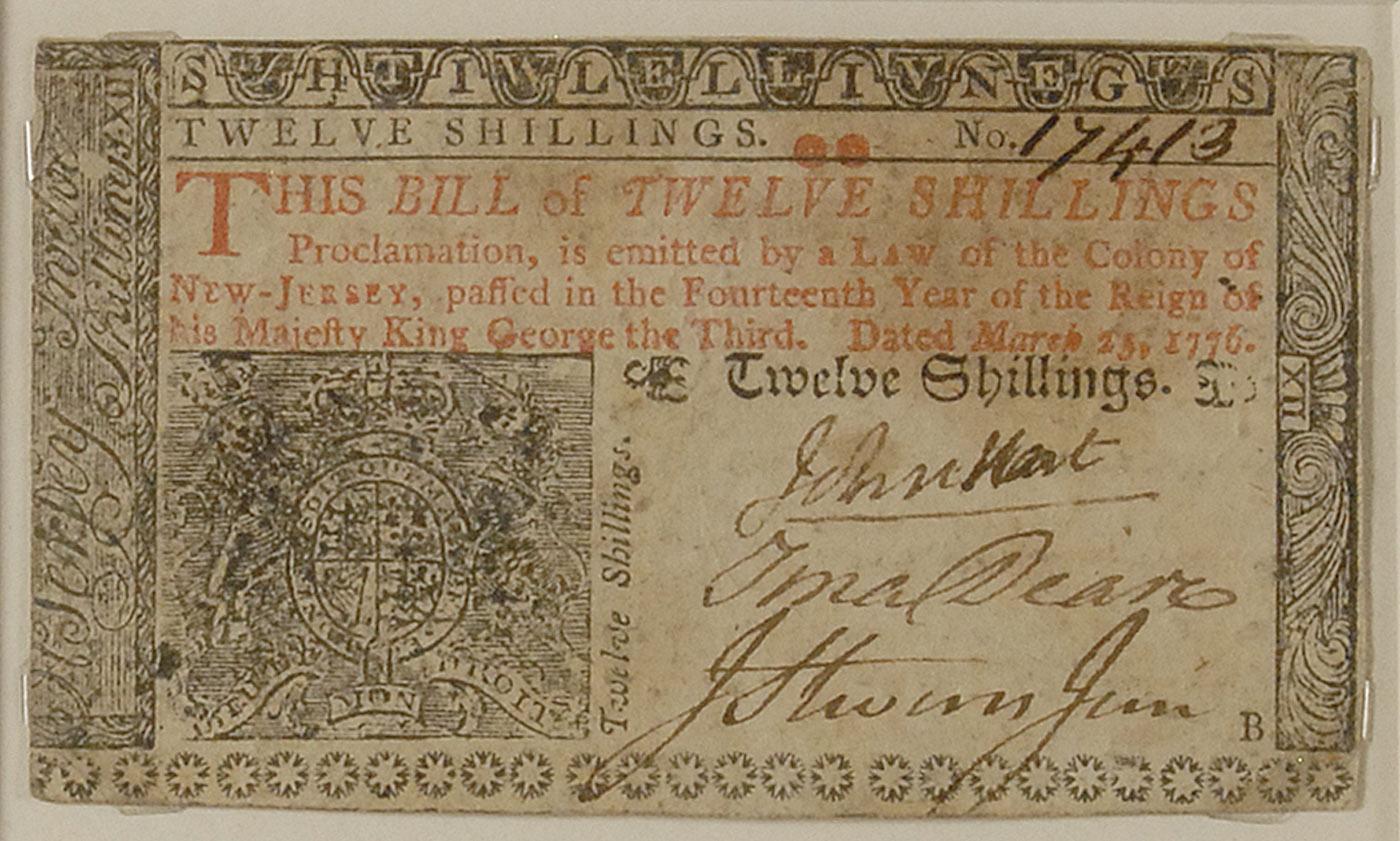 SSHHTIIWLELLEILLIVNEGES
TWELVE SHILLINGS. No. 17413
THIS BILL of TWELVE SHILLINGS
Proclamation, is emitted by a Law of the Colony of
NEW-JERSEY, paſſed in the Fourteenth Year of the Reign of
his Majeſty King George the Third. Dated March 25, 1776.
Twelve Shillings.
John Hart
J Stevens Jun
Twelve Shillings.
MON
DROIT
B
XII
Jerſey
Twelve
Shillings XII